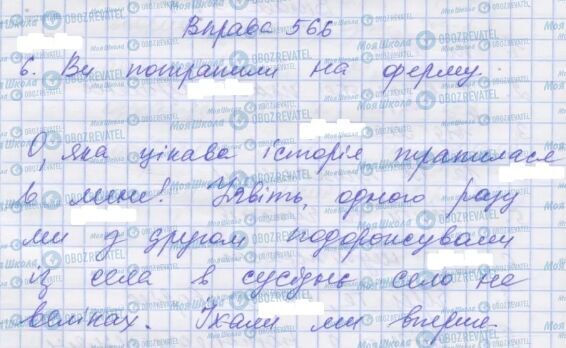 Вправа 566
6. Ви потрапили на ферму.
О, яка цікава історія трапилася
в мене! Уявіть, одного разу
ми з другом подорожували
із села в сусіднє село на
веліках. Їхали ми вперше.